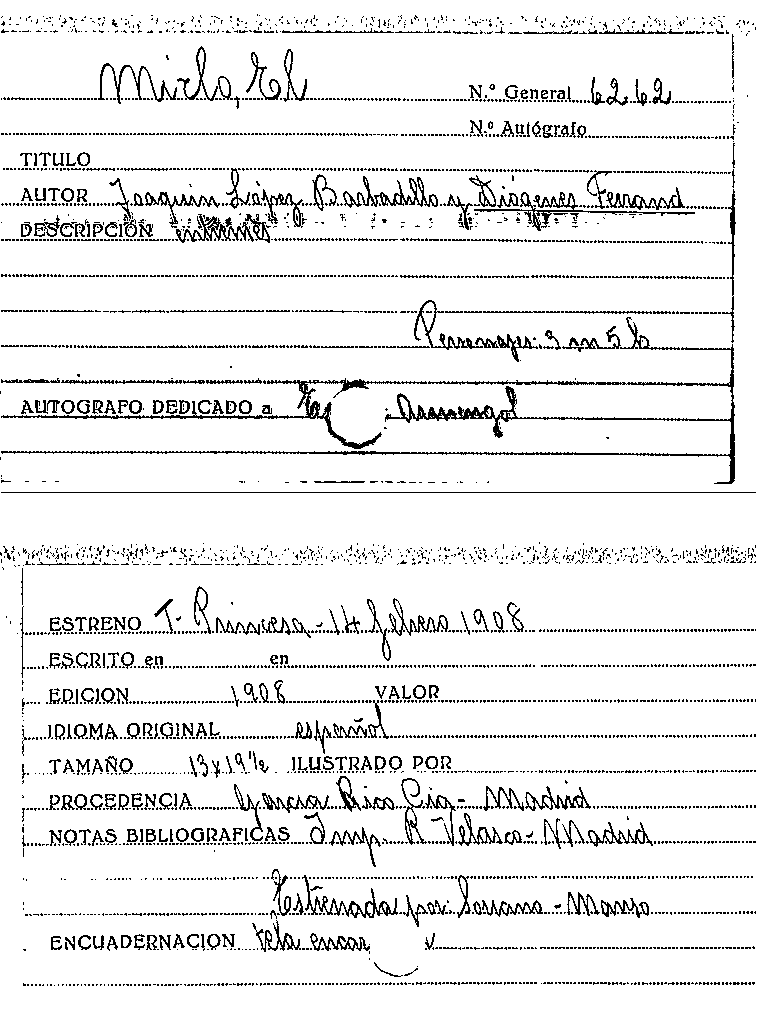 Mirlo, El
N.º General 6262
N.º Autógrafo
TITULO
AUTOR Joaquin López Barbadillo y Diógenes Ferrand
DESCRIPCIÓN entremés
Personajes: 3 m 5 h
AUTOGRAFO DEDICADO a Armengol
ESTRENO T. Princesa - 14 febrero 1908
ESCRITO en en
EDICION 1908 VALOR
IDIOMA ORIGINAL español
TAMAÑO 13x19½ ILUSTRADO POR
PROCEDENCIA García Rico Cia - Madrid
NOTAS BIBLIOGRAFICAS Imp. R Velasco - Madrid
Estrenada por: Soriano - Manso
ENCUADERNACION tela encar